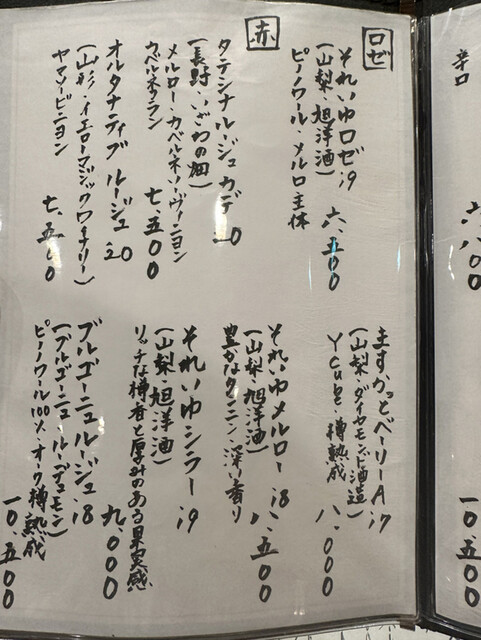 辛口
六、八〇〇
一〇、五〇〇
ロゼ
それいゆロゼ i9
(山梨・旭洋酒)
ピノノワール・メルロ主体
六、五〇〇
赤
タテシナルージュカデ 20
(長野・いざわの畑)
メルロー・カベルネソーヴィニヨン
カベルネフラン
七、五〇〇
オルタナティブ ルージュ 20
(山形・イエローマジックワイナリー)
ヤマソービニヨン
七、五〇〇
ますかっとベーリーA i7
(山梨・ダイヤモンド酒造)
Ycube・樽熟成
八、〇〇〇
それいゆメルロー i8
(山梨・旭洋酒)
豊かなタンニン・深い香り
八、五〇〇
それいゆシラー i9
(山梨・旭洋酒)
リッチな樽香と厚みのある果実感
九、〇〇〇
ブルゴーニュルージュ i8
(ブルゴーニュ・ルーデュモン)
ピノノワール100%・オーク樽熟成
一〇、五〇〇